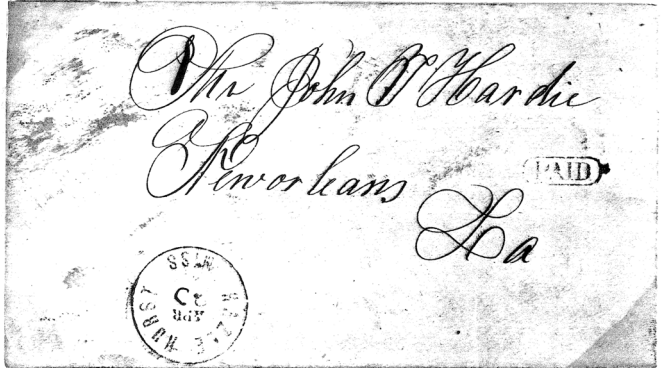 Mr John T Hardie
Neworleans
La
PAID
HAZLEHURST MISS
APR